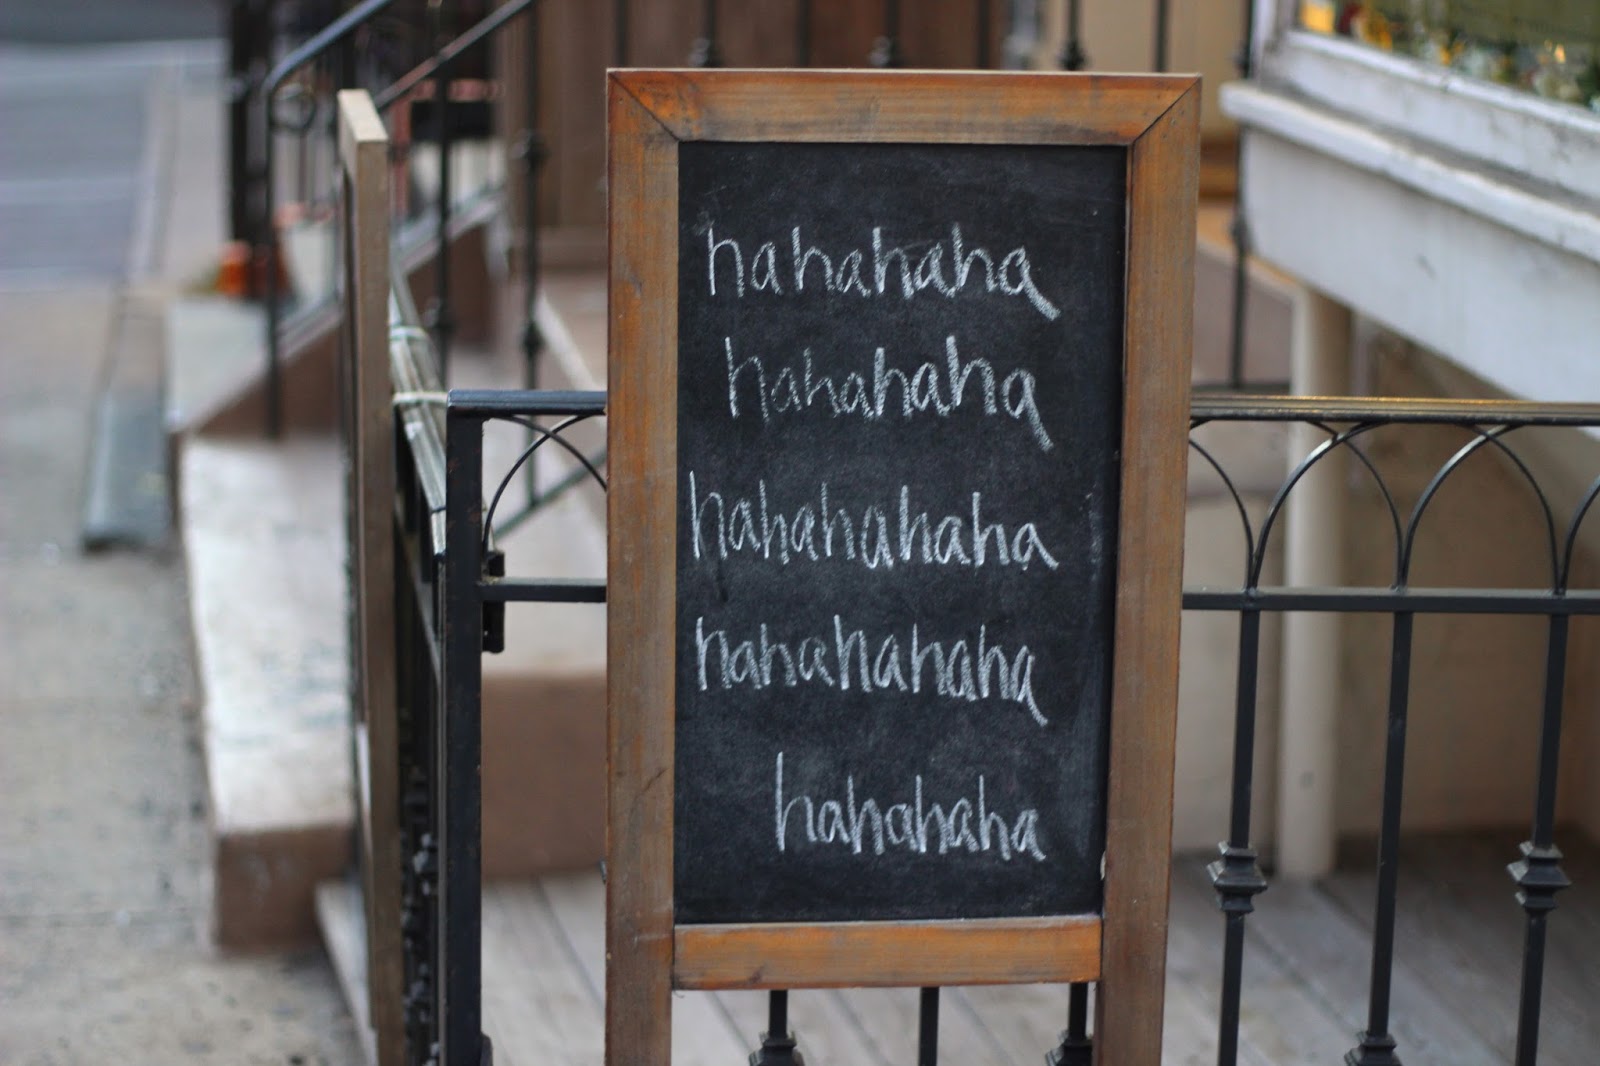 hahahaha
hahahaha
hahahahaha
hahahahaha
hahahaha